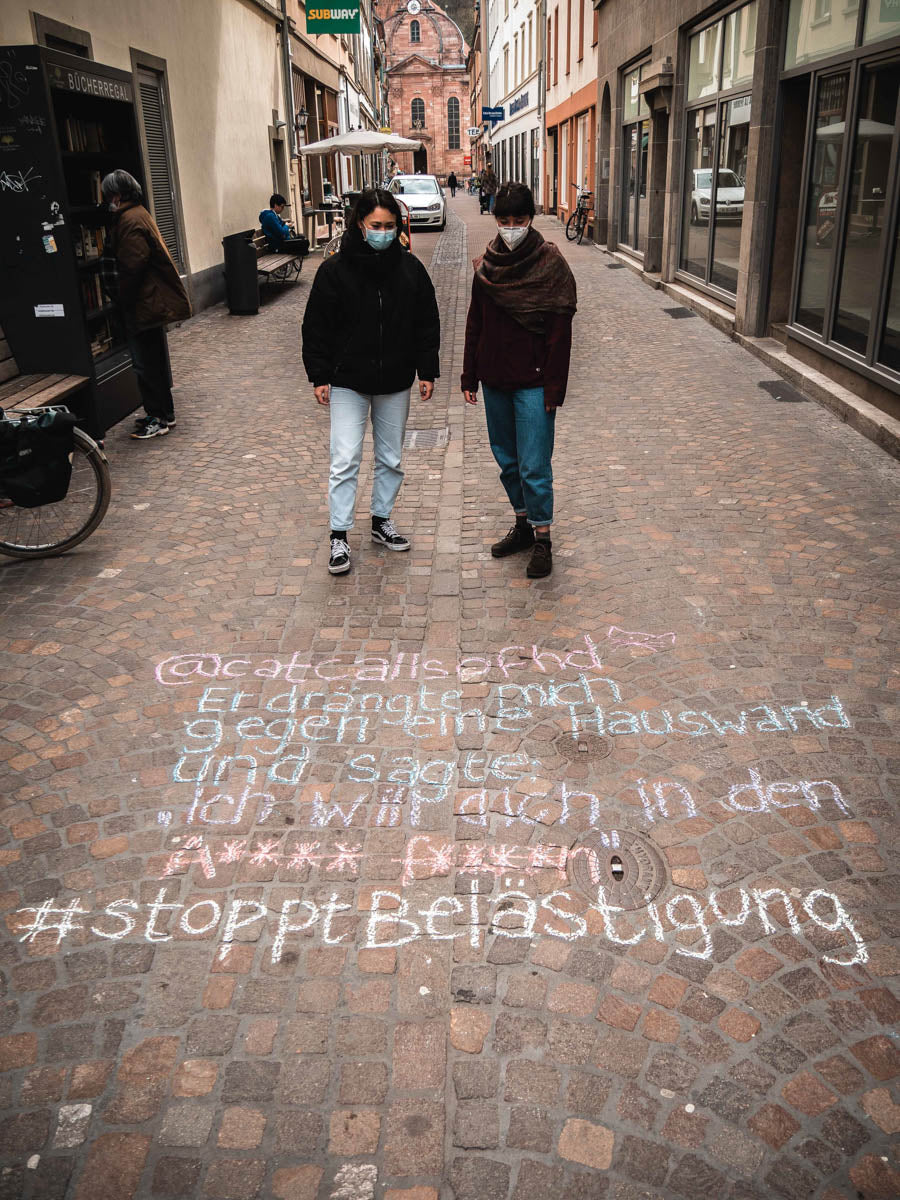 SUBWAY
BÜCHERREGAL
@catcallsofhd
Er drängte mich
gegen eine Hauswand
und sagte:
„Ich will dich in den
A*** f****n"
#stopptBelästigung